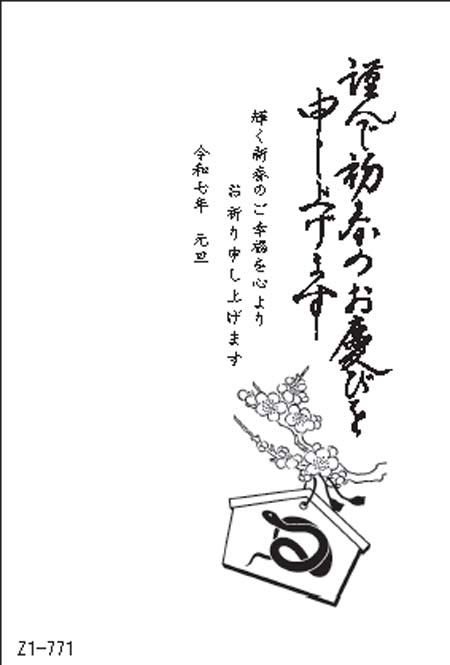 謹んで初春のお慶びを
申し上げます
輝く新春のご幸福を心より
お祈り申し上げます
令和七年　元旦
Z1-771